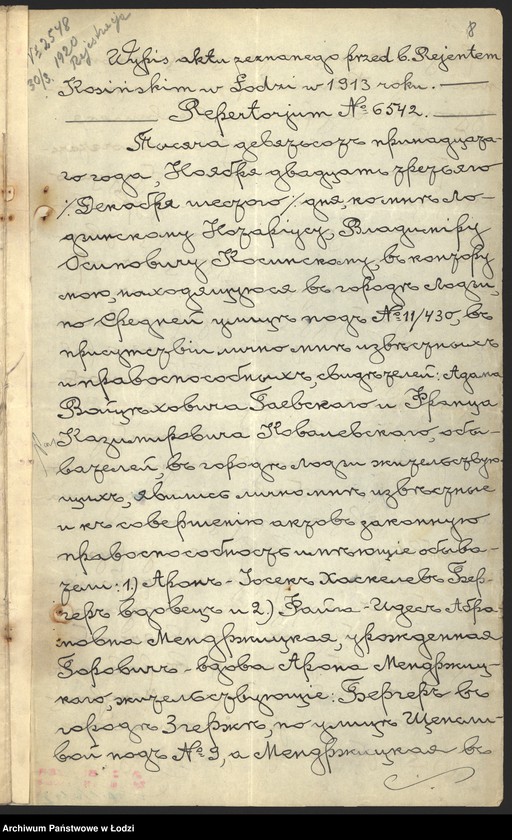 8
N: 2548
30/3. 1920
Wypis aktu zeznanego przed b. Rejentem
Kosińskim w Łodzi w 1913 roku.
Repertorjum № 6542.
Тысяча девятьсотъ тринадцата-
го года, Ноября двадцать третьяго
/Декабря шестого/ дня, ко мнѣ Ло-
дзинскому Нотаріусу, Владиміру
Осиповичу Косинскому, въ контору
мою, находящуюся въ городѣ Лодзи,
по Средней улицѣ подъ № 11/430, въ
присутствіи лично мнѣ извѣстныхъ
и правоспособныхъ, свидѣтелей: Адама
Войцѣховича Гаевскаго и Франца
Казимировича Ковалевскаго, обы-
вателей, въ городѣ Лодзи жительствую-
щихъ, явились лично мнѣ извѣстные
и къ совершенію актовъ законную
правоспособность имѣющіе обыва-
тели: 1.) Аронъ-Іосекъ Хаскелевъ Бер-
геръ вдовецъ и 2.) Файга-Идесъ Абра-
мовна Мендржицкая, урожденная
Горовичъ - вдова Арона Мендржиц-
каго, жительствующіе: Бергеръ въ
городѣ Згержѣ, по улицѣ Щенсли-
вой подъ № 9, а Мендржицкая въ
Archiwum Państwowe w Łodzi